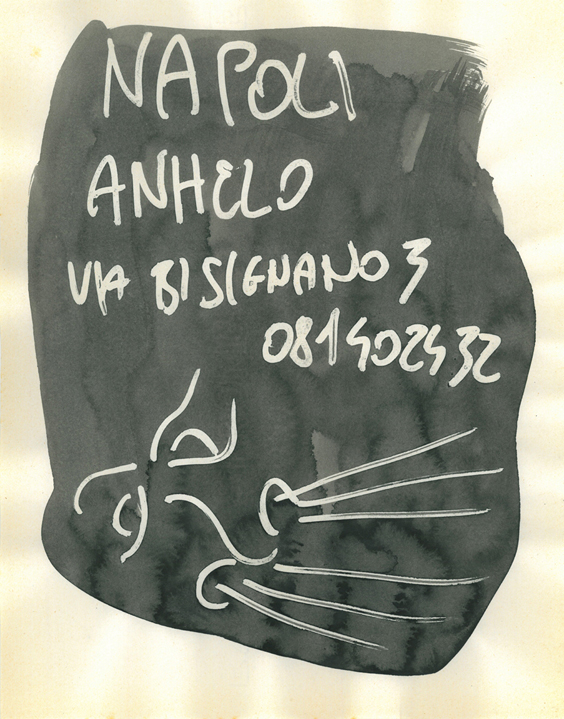 NAPOLI
ANHELO
VIA BISIGNANO 3
081402432